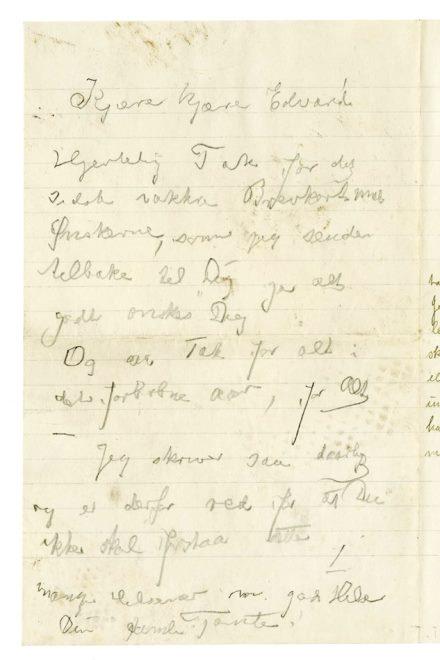 Kjære kjære Edvard.
Hjertelig Tak for det
vakkra Brevkort med
Ønskerne, som jeg sender
tilbake til Dig ja alt
godt ønskes Dig
Og saa Tak for alt i
det forløbne aar, for Alt
Jeg skriver saa daarlig
og er derfor ræd for at Du
ikke skal forstaa dette
!
mange Hilsener
Din gamle Tante.